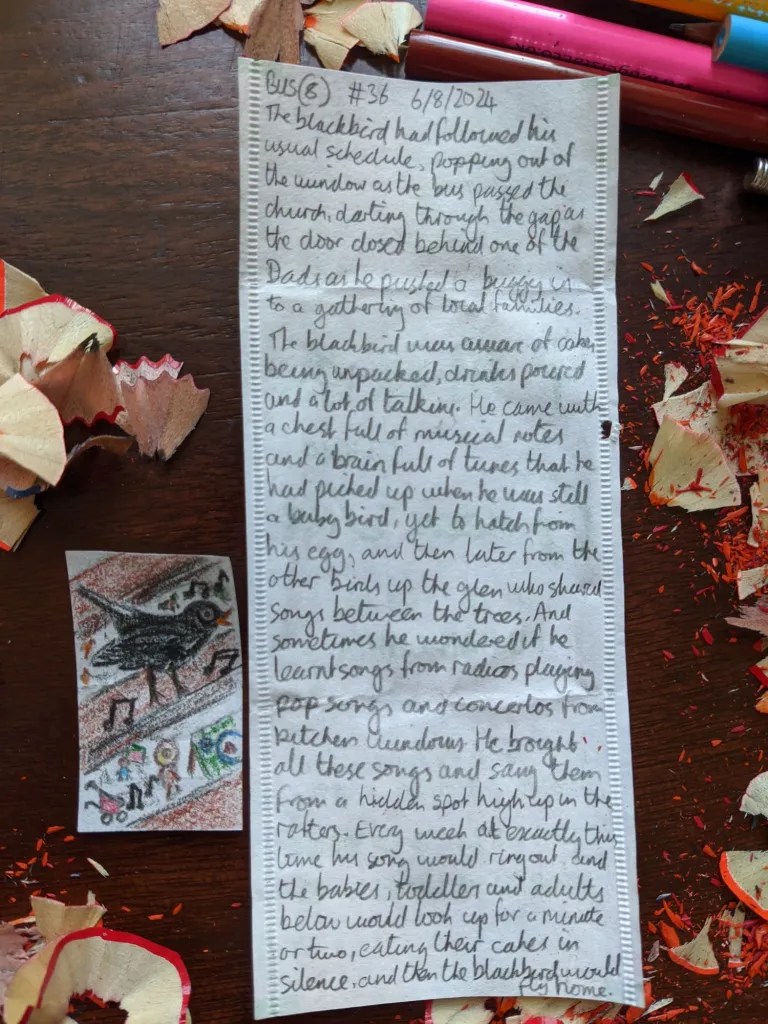 BUS(8) #36 6/8/2024
The blackbird had followed his
usual schedule, popping out of
the window as the bus passed the
church, darting through the gap as
the door closed behind one of the
Dads as he pushed a buggy in
to a gathering of local families.
The blackbird was aware of cakes
being unpacked, drinks poured
and a lot of talking. He came with
a chest full of musical notes
and a brain full of tunes that he
had picked up when he was still
a baby bird, yet to hatch from
his egg, and then later from the
other birds up the glen who shared
songs between the trees. And
sometimes he wondered if he
learnt songs from radios playing
pop songs and concertos from
kitchen windows. He brought
all these songs and sang them
from a hidden spot high up in the
rafters. Every week at exactly this
time his song would ring out, and
the babies, toddlers and adults
below would look up for a minute
or two, eating their cakes in
silence, and then the blackbird would
fly home.